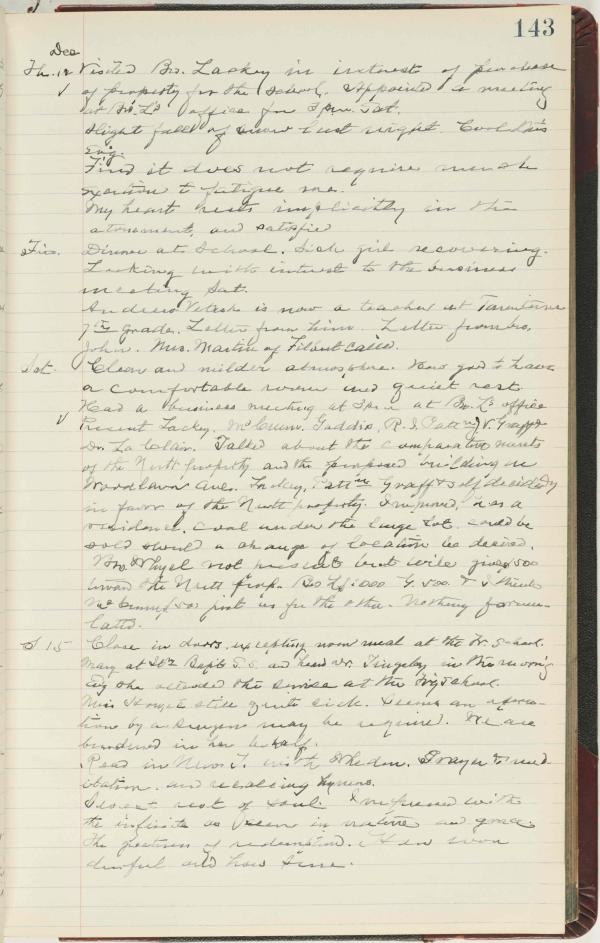 143
Dec
Th. 12 Visited Bro. Lackey in interests of purchase
of property for the school. Appointed a meeting
at Bro. L's office for 3 P.M. Sat.
Slight fall of snow last night. Cool this
Evg.
Find it does not require much
exertion to fatigue me.
My heart rests implicitly in the
atonement, and satisfied
Fri. Dinner at School. Sick girl recovering.
Looking with interest to the business
meeting Sat.
Andrew is now a teacher at Tarentum
7th Grade. Letter from him. Letter from
John. Mrs. Martin of called.
Sat Clear and milder atmosphere. How good to have
a comfortable room and quiet rest.
Had a business meeting at 3 P.M. at Bro. L's office
Present Lackey, McCrum, Gaddis, R. J. Patt V. Graff &
Dr. La Clair. Talked about the comparative merits
of the Nutt property and the proposed building on
Woodlawn Ave. Lackey, Patt Graff & self decided
in favor of the Nutt property. Improved, as a
residence. Coal under the large lot could be
sold should a change of location be desired.
Bro. Whyel not present but will give 500
toward the Nutt prop. Bro L 1,000 G. 500
for the other. Nothing
S 15 Close in doors, excepting noon meal at the Tr. School.
Mary at Bapt S.S. and heard Dr. Tingley in the morning
Evg she attended the service at the Trg School.
Miss still quite sick. Seems an opera-
tion by a surgeon may be required. We are
burdened in her behalf.
Read in New T. with Whedon. Prayer & med-
itation, and hymns.
Sweet rest of soul. Impressed with
the infinite as seen in nature and grace.
The greatness of redemption. How won
derful and how sure.